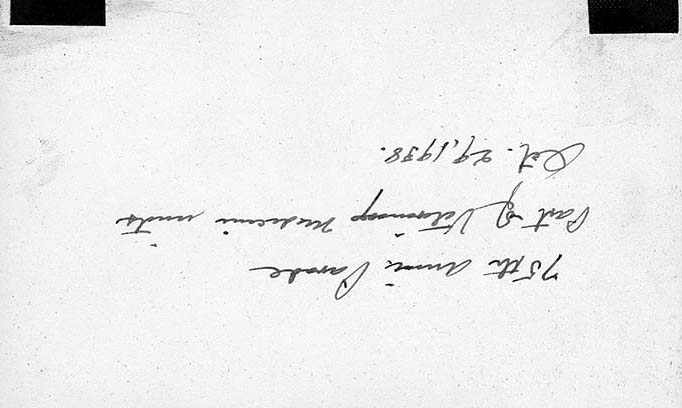 75th Anni Parade
Part of Veterinary Medicine units
Oct. 29, 1938.